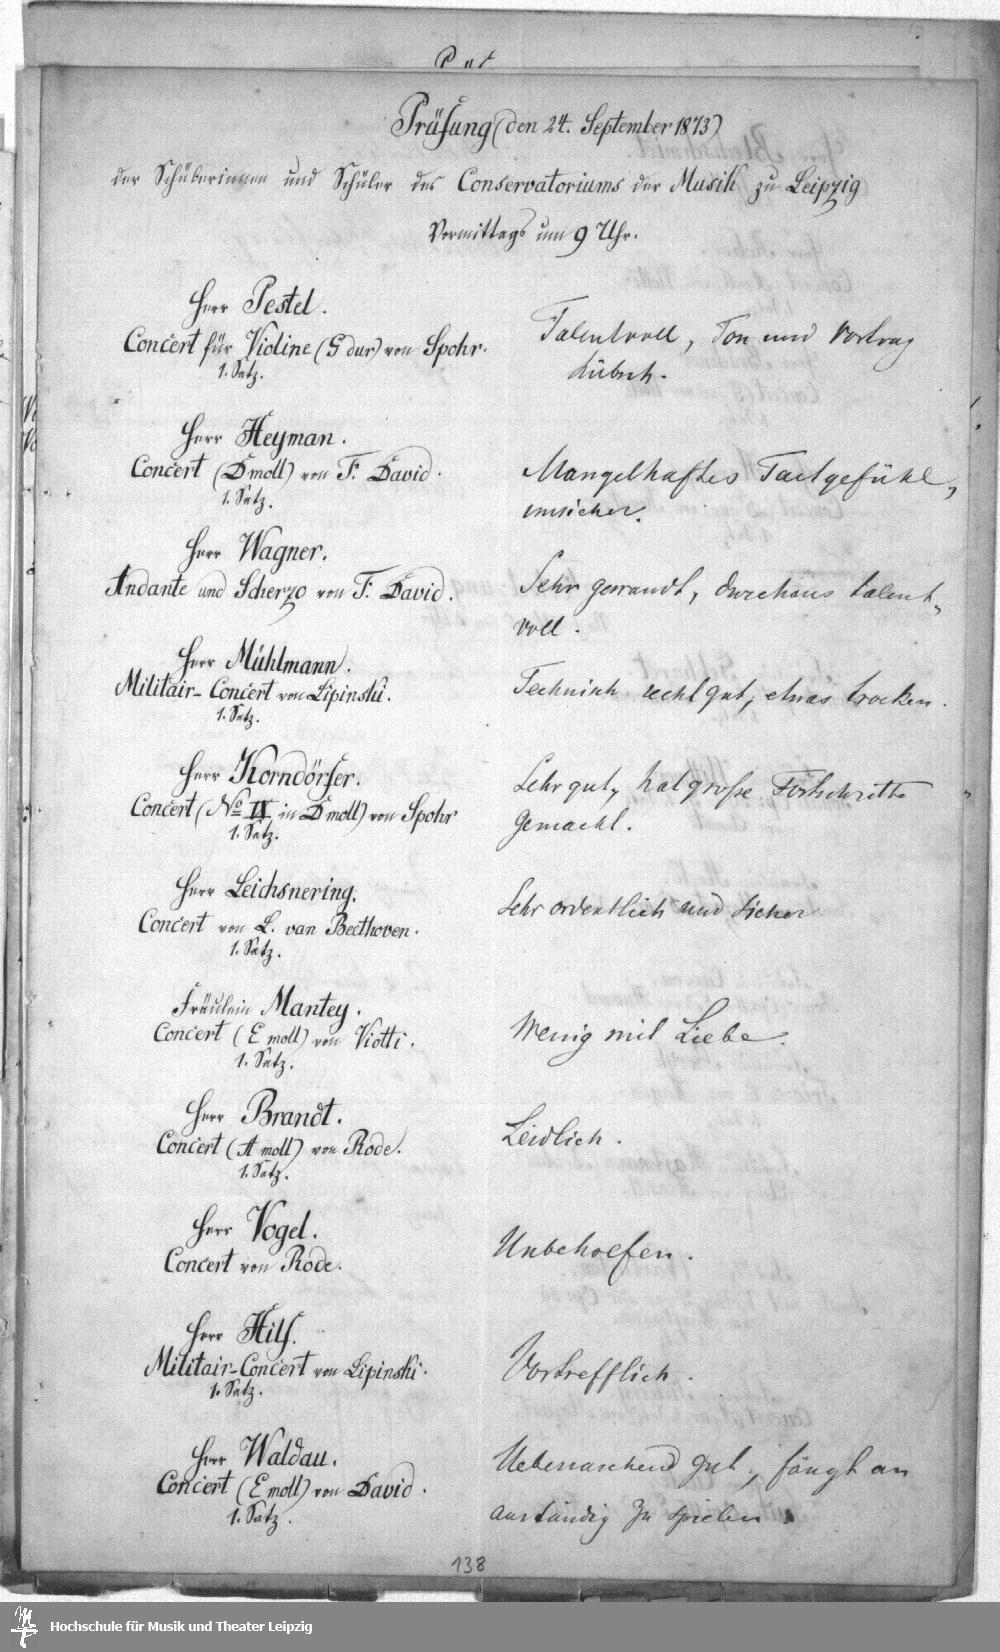 Prüfung (den 24. September 1873)
der Schülerinnen und Schüler des Conservatoriums der Musik zu Leipzig
Vormittags um 9 Uhr.
Herr Pestel.
Concert für Violine (G dur) von Spohr.
1. Satz.
Talentvoll, Ton und Vortrag
hübsch.
Herr Heyman.
Concert (D moll) von F. David.
1. Satz.
Mangelhaftes Tactgefühl,
unsicher.
Herr Wagner.
Andante und Scherzo von F. David.
Sehr gewandt, durchaus talent-
voll.
Herr Mühlmann.
Militair-Concert von Lipinski.
1. Satz.
Technick recht gut, etwas trocken.
Herr Korndörfer.
Concert (No IX in D moll) von Spohr
1. Satz.
Sehr gut, hat große Fortschritte
gemacht.
Herr Leichsnering.
Concert von L. van Beethoven.
1. Satz.
Sehr ordentlich und sicher
Fräulein Mantey.
Concert (E moll) von Viotti.
1. Satz.
Wenig mit Liebe.
Herr Brandt.
Concert (A moll) von Rode.
1. Satz.
Leidlich.
Herr Vogel.
Concert von Rode.
Unbeholfen.
Herr Hilf.
Militair-Concert von Lipinski.
1. Satz.
Vortrefflich.
Herr Waldau.
Concert (E moll) von David.
1. Satz.
Ueberraschend gut, fängt an
anständig zu spielen.
138
Hochschule für Musik und Theater Leipzig